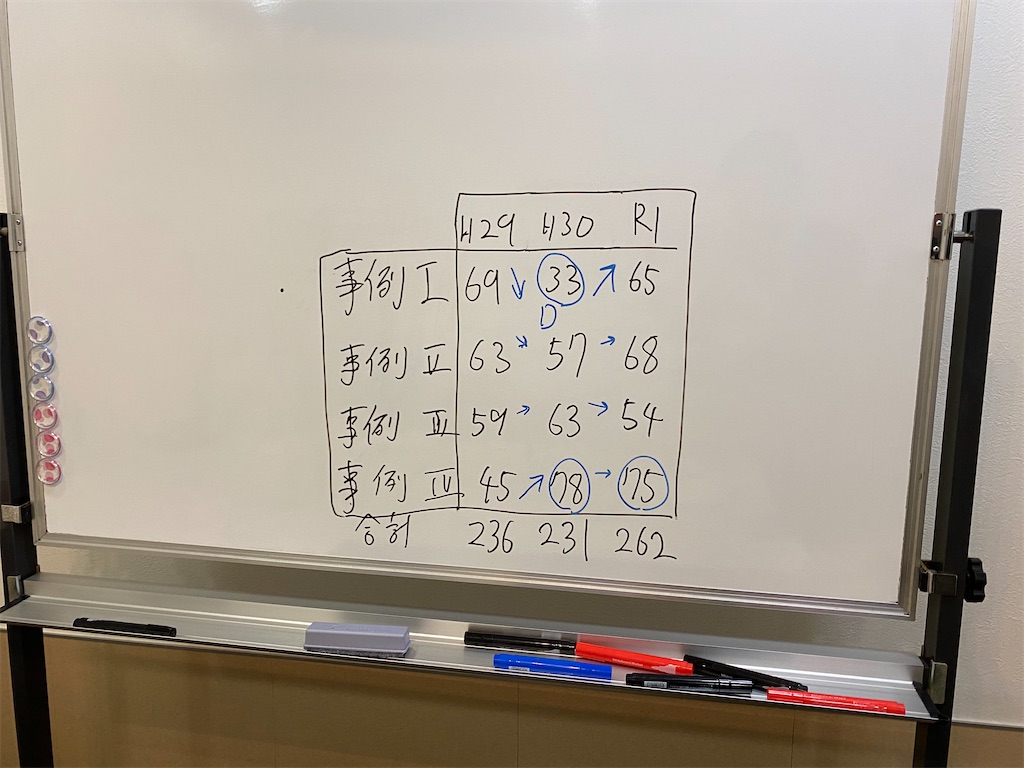 H29 H30 R1
事例 I 69 ↓ 33 ↗ 65
D
事例 II 63 → 57 → 68
事例 III 59 → 63 → 54
事例 IV 45 ↗ 78 → 75
合計 236 231 262